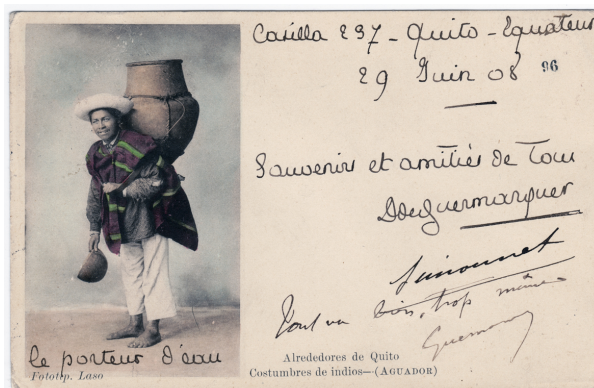 Casilla 237 - Quito - Equateur
29 Juin 08 96
Souvenirs et amitiés de Tous
Tout va bien, trop même
le porteur d'eau
Fototip. Laso
Alrededores de Quito
Costumbres de indios—(AGUADOR)